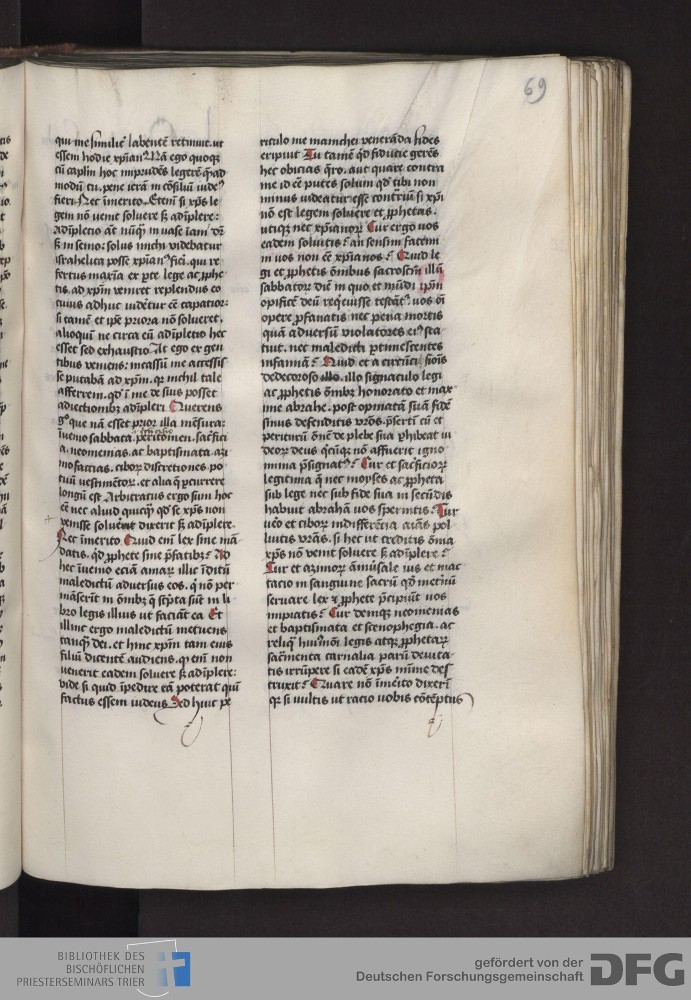 69
qui me similit᷑ labente᷑ retinuit. ut
essem hodie xp̄ian᷒ Nā ego quoqꝫ
cū capl̄m hoc inprudēs legerē q̄ad
modū tu. pene ierā ī cōsiliū iude᷒
fieri. Nec īmerito. Eteni᷑ si xp̄s le
gem nō venit soluere sꝫ adīplere:
adīpletio aūt nūq̄ ī uase iam
sꝫ in semo: solus michi videbatur
israhelita posse xp̄ian᷒ fici. qui re
fertus maxīa ex pte lege ac ꝓphe
tis. ad xp̄m veniret replendus eo
cuius adhuc uidētur eē capatior:
si tamē et ip̄e priora nō solueret.
alioqui᷑ ne circa eū adīpletio hec
esset sed exhaustio At ego ex gen
tibus veniens: incassū me accessis
se putabā ad xp̄m. qꝛ nichil tale
afferrem. qd̓ ī me de suis posset
adiectionibꝫ adīpleri Querens
g̊ que nā esset prior illa mēsura:
īuenio sabbata. peritomen. sac̓fici
a. neomenias. ac baptismata. azi
mo facias. cibor̄ discretiones. po
tuū uestimētor̄. et alia q̄ percurrere
longū est Arbitratus ergo sum hoc
eē nec aliud quicq̄ qd̓ se xp̄s non
venisse soluere dixerit sꝫ adīplere.
Nec īmerito Quid eni᷑ lex sine mā
datis. qd̓ ꝓphete sine p̄satibꝫ? Ad
hec īuenio eciā amar̄ illic īditū
maledictū adversus eos. q̇ nō per
māserīt in om̄ibꝫ q̄ sc̓pta sūt in li
bro legis illius ut faciāt ea Et
illinc ergo maledictū metuens
tanq̄ dei. et hinc xp̄m tam eius
filiū dicentē audiens. qꝫ eni᷑ non
venerit eadem soluere sꝫ adīplere:
vide si quid īpedire eā poterat quī
factus essem iudeus Sed huic pe
riculo me manichei veneranda fides
eripuit Tu tamē qd̓ fiducie gerēs
hec obicias q̄ro. aut quare contra
me id eē putes solum qd̓ tibi non
minus videatur esse contriū si xp̄i
nō est legem soluere et ꝓphetas.
utiqꝫ nec xp̄ianor̄ Cur ergo vos
eadem soluitis? an sensim fatem
ini vos non eē xp̄ianos? Quid le
gi et ꝓphetis om̄ibus sacrosc̄m illū
sabbator̄ diē in quo et mūdi ip̄m
opificē deū reqͥeuisse testat᷑. vos oī
opere ꝓfanatis nec pena mortis
quā adversū violatores ei᷒ sta
tuit. nec maledicti ptimescentes
infamiā? Quid et a circūcisionis
dedecoroso illo signaculo legi
ac ꝓphetis om̄ibꝫ honorato et max
ime abrahe. post opinatā suā fidē
sinus defenditis vr̄os. p̄sertī cū et
periturū om̄e de plebe sua ꝓhibeat iu
deor̄ deus qͥcūqꝫ nō affuerit igno
minia p̄signat᷒? Cur et sac̓ficior̄
legitima q̄ nec moyses ac ꝓpheta
sub lege nec sub fide sua in secūdis
habuit abrahā vos spernitis? Cur
uero et cibor̄ indifferēcia aīas pol
luitis vr̄as. si hec ut creditis om̄ia
xp̄s nō venit soluere sꝫ adīplere?
Cur et azimor̄ ānīusale ius et mac
tacio in sanguine sacrū qd̓ metūū
seruare lex ⁊ ꝓphete p̄cipiūt vos
inpiatis? Cur demqꝫ neomenias
et baptismata et scenophegia. ac
reliq̄ hui᷒mōi legis atqꝫ ꝓphetar̄
sac̓menta carnalia parū deuita
tis irrūpere si eadē xp̄s mīme des
truxit? Quare nō īm̄ito dixeri᷑
qꝛ si vultis ut racio vobis cōtēptus
BIBLIOTHEK DES
BISCHÖFLICHEN
PRIESTERSEMINARS TRIER
gefördert von der
Deutschen Forschungsgemeinschaft
DFG